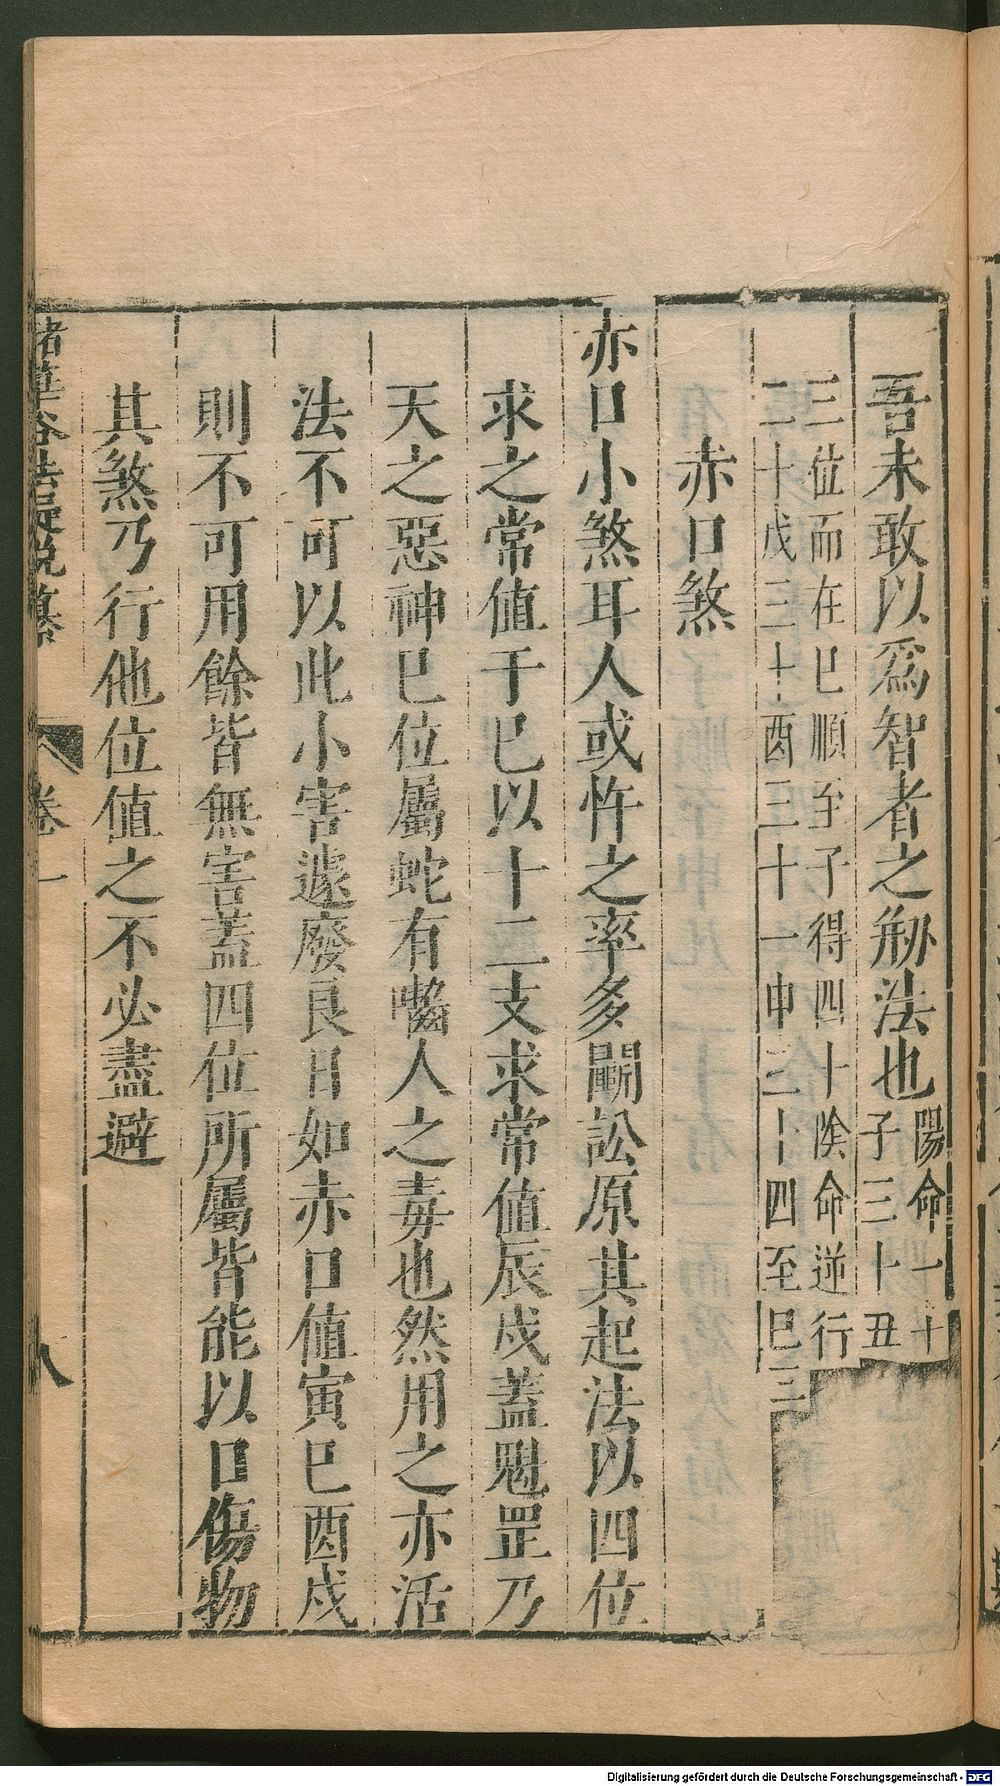 吾未敢以爲智者之刱法也陽命一十
子三十丑
三位而在巳順至子得四十陰命逆行
二十戌三十酉三十一申三十四至巳三
赤口煞
赤口小煞耳人或忤之率多鬭訟原其起法以四位
求之常值于巳以十二支求常值辰戌蓋魁罡乃
天之惡神巳位屬蛇有嚙人之毒也然用之亦活
法不可以此小害遽廢良日如赤口值寅巳酉戌
則不可用餘皆無害蓋四位所屬皆能以口傷物
其煞乃行他位值之不必盡避
卷一
八
Digitalisierung gefördert durch die Deutsche Forschungsgemeinschaft - DFG